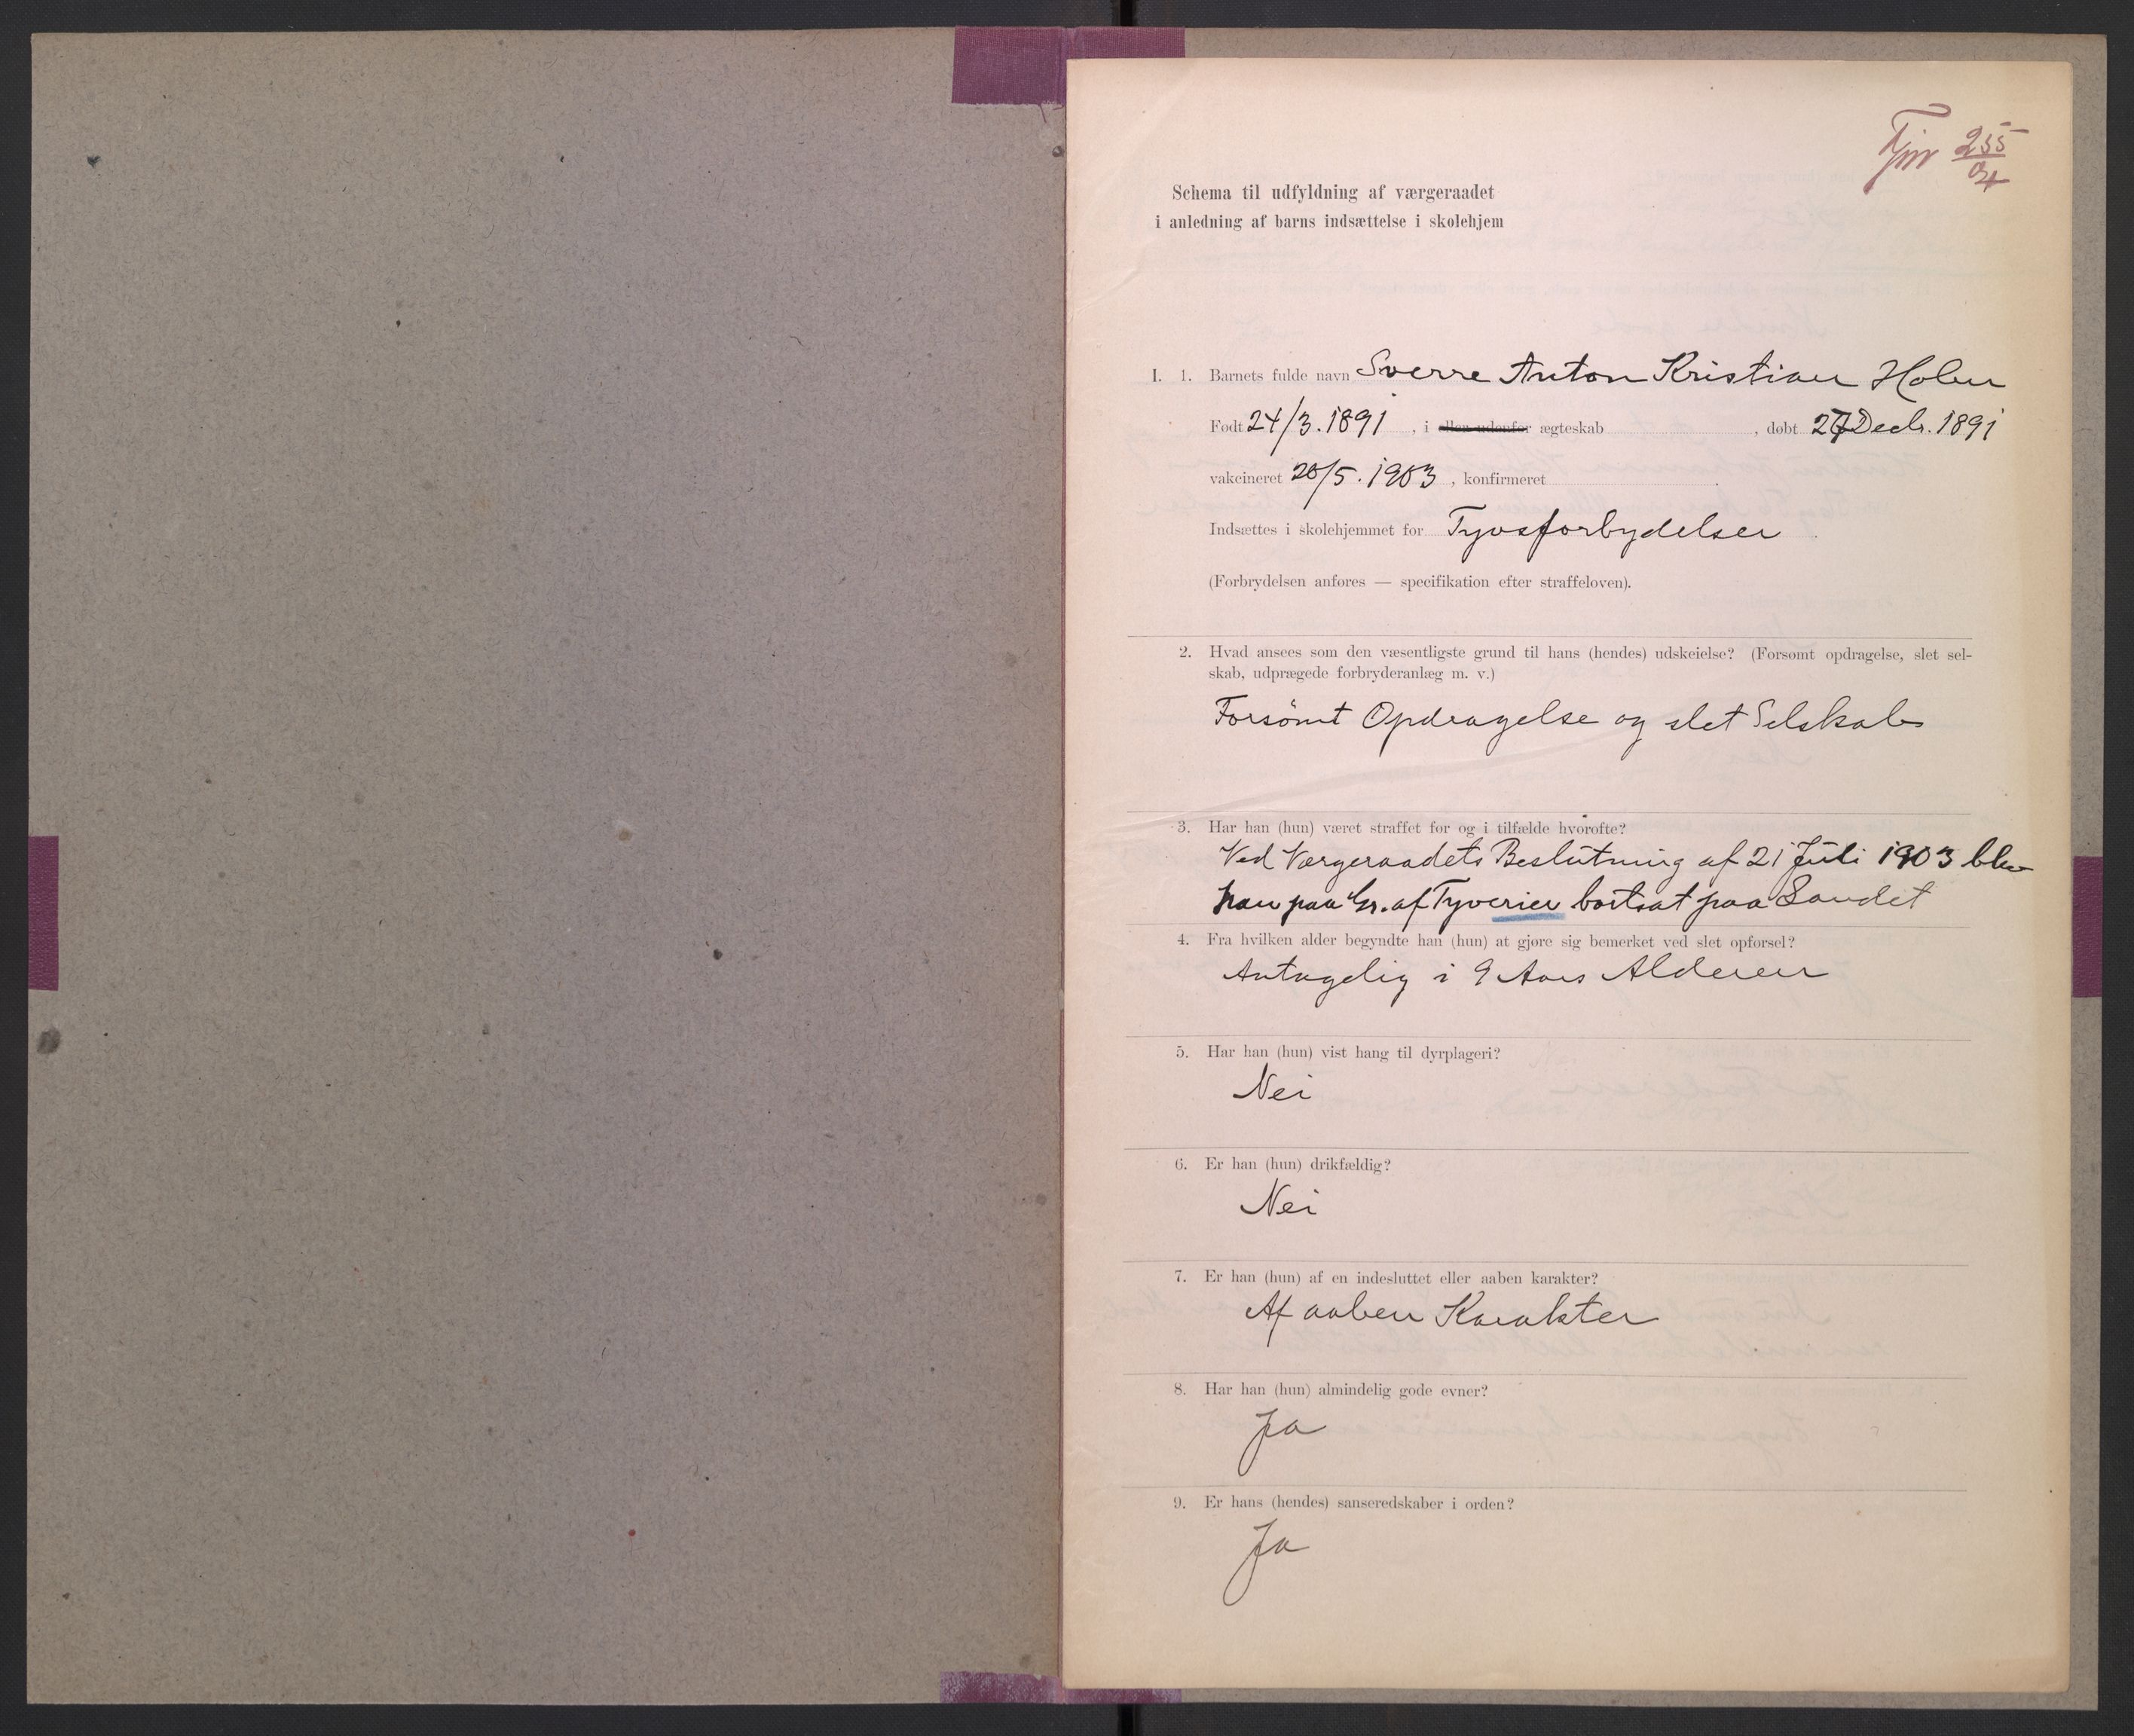 Tjm 255/04
Schema til udfyldning af værgeraadet
i anledning af barns indsættelse i skolehjem
I. 1. Barnets fulde navn Sverre Anton Kristian Holm
Født 24/3. 1891, i eller udenfor ægteskab , døbt 27 Decbr. 1891
vakcineret 20/5. 1903, konfirmeret
Indsættes i skolehjemmet for Tyvsforbydelser
(Forbrydelsen anføres — specifikation efter straffeloven).
2. Hvad ansees som den væsentligste grund til hans (hendes) udskeielse? (Forsømt opdragelse, slet sel-
skab, udprægede forbryderanlæg m. v.)
Forsømt Opdragelse og slet Selskab
3. Har han (hun) været straffet før og i tilfælde hvorofte?
Ved Værgeraadets Beslutning af 21 Juli 1903 blev
han paa Gr. af Tyverier bortsat paa Landet
4. Fra hvilken alder begyndte han (hun) at gjøre sig bemerket ved slet opførsel?
Antagelig i 9 Aars Alderen
5. Har han (hun) vist hang til dyrplageri?
Nei
6. Er han (hun) drikfældig?
Nei
7. Er han (hun) af en indesluttet eller aaben karakter?
Af aaben Karakter
8. Har han (hun) almindelig gode evner?
Ja
9. Er hans (hendes) sanseredskaber i orden?
Ja